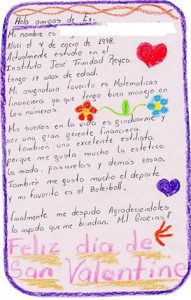 Hola amigos de E
Mi nombre es
Nací el 4 de enero de 1998.
Actualmente estudio en el
Instituto José Trinidad Reyes.
tengo 17 años de edad.
Mi asignatura favorita es Matematicas
financiera ya que tengo buen manejo en
los números
Mis sueños en la vida es graduarme y
ser una gran gerente financiera
y también una excelente estilista.
porque me gusta mucho la estetica,
la moda, pasarelas y demás cosas.
También me gusta mucho el deporte
y mi favorito es el Balenboll.
finalmente me despido Agradeciendoles
la ayuda que me brindan. Mil Gracias!!
Feliz día de
San Valentine